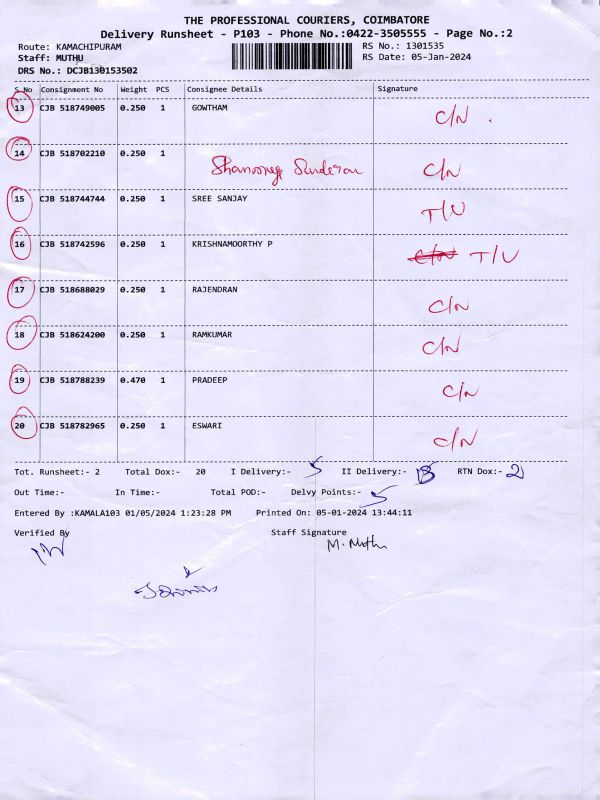 THE PROFESSIONAL COURIERS, COIMBATORE
Delivery Runsheet - P103 - Phone No.:0422-3505555 - Page No.:2
Route: KAMACHIPURAM RS No.: 1301535
Staff: MUTHU RS Date: 05-Jan-2024
DRS No.: DCJB130153502
S No Consignment No Weight PCS Consignee Details Signature
13 CJB 518749005 0.250 1 GOWTHAM C/N
14 CJB 518702210 0.250 1 C/N
15 CJB 518744744 0.250 1 SREE SANJAY T/U
16 CJB 518742596 0.250 1 KRISHNAMOORTHY P T/U
17 CJB 518688029 0.250 1 RAJENDRAN C/N
18 CJB 518624200 0.250 1 RAMKUMAR C/N
19 CJB 518788239 0.470 1 PRADEEP C/N
20 CJB 518782965 0.250 1 ESWARI C/N
Tot. Runsheet:- 2 Total Dox:- 20 I Delivery:- 5 II Delivery:- 13 RTN Dox:- 2
Out Time:- In Time:- Total POD:- Delvy Points:- 5
Entered By :KAMALA103 01/05/2024 1:23:28 PM Printed On: 05-01-2024 13:44:11
Verified By Staff Signature
M. Muthu